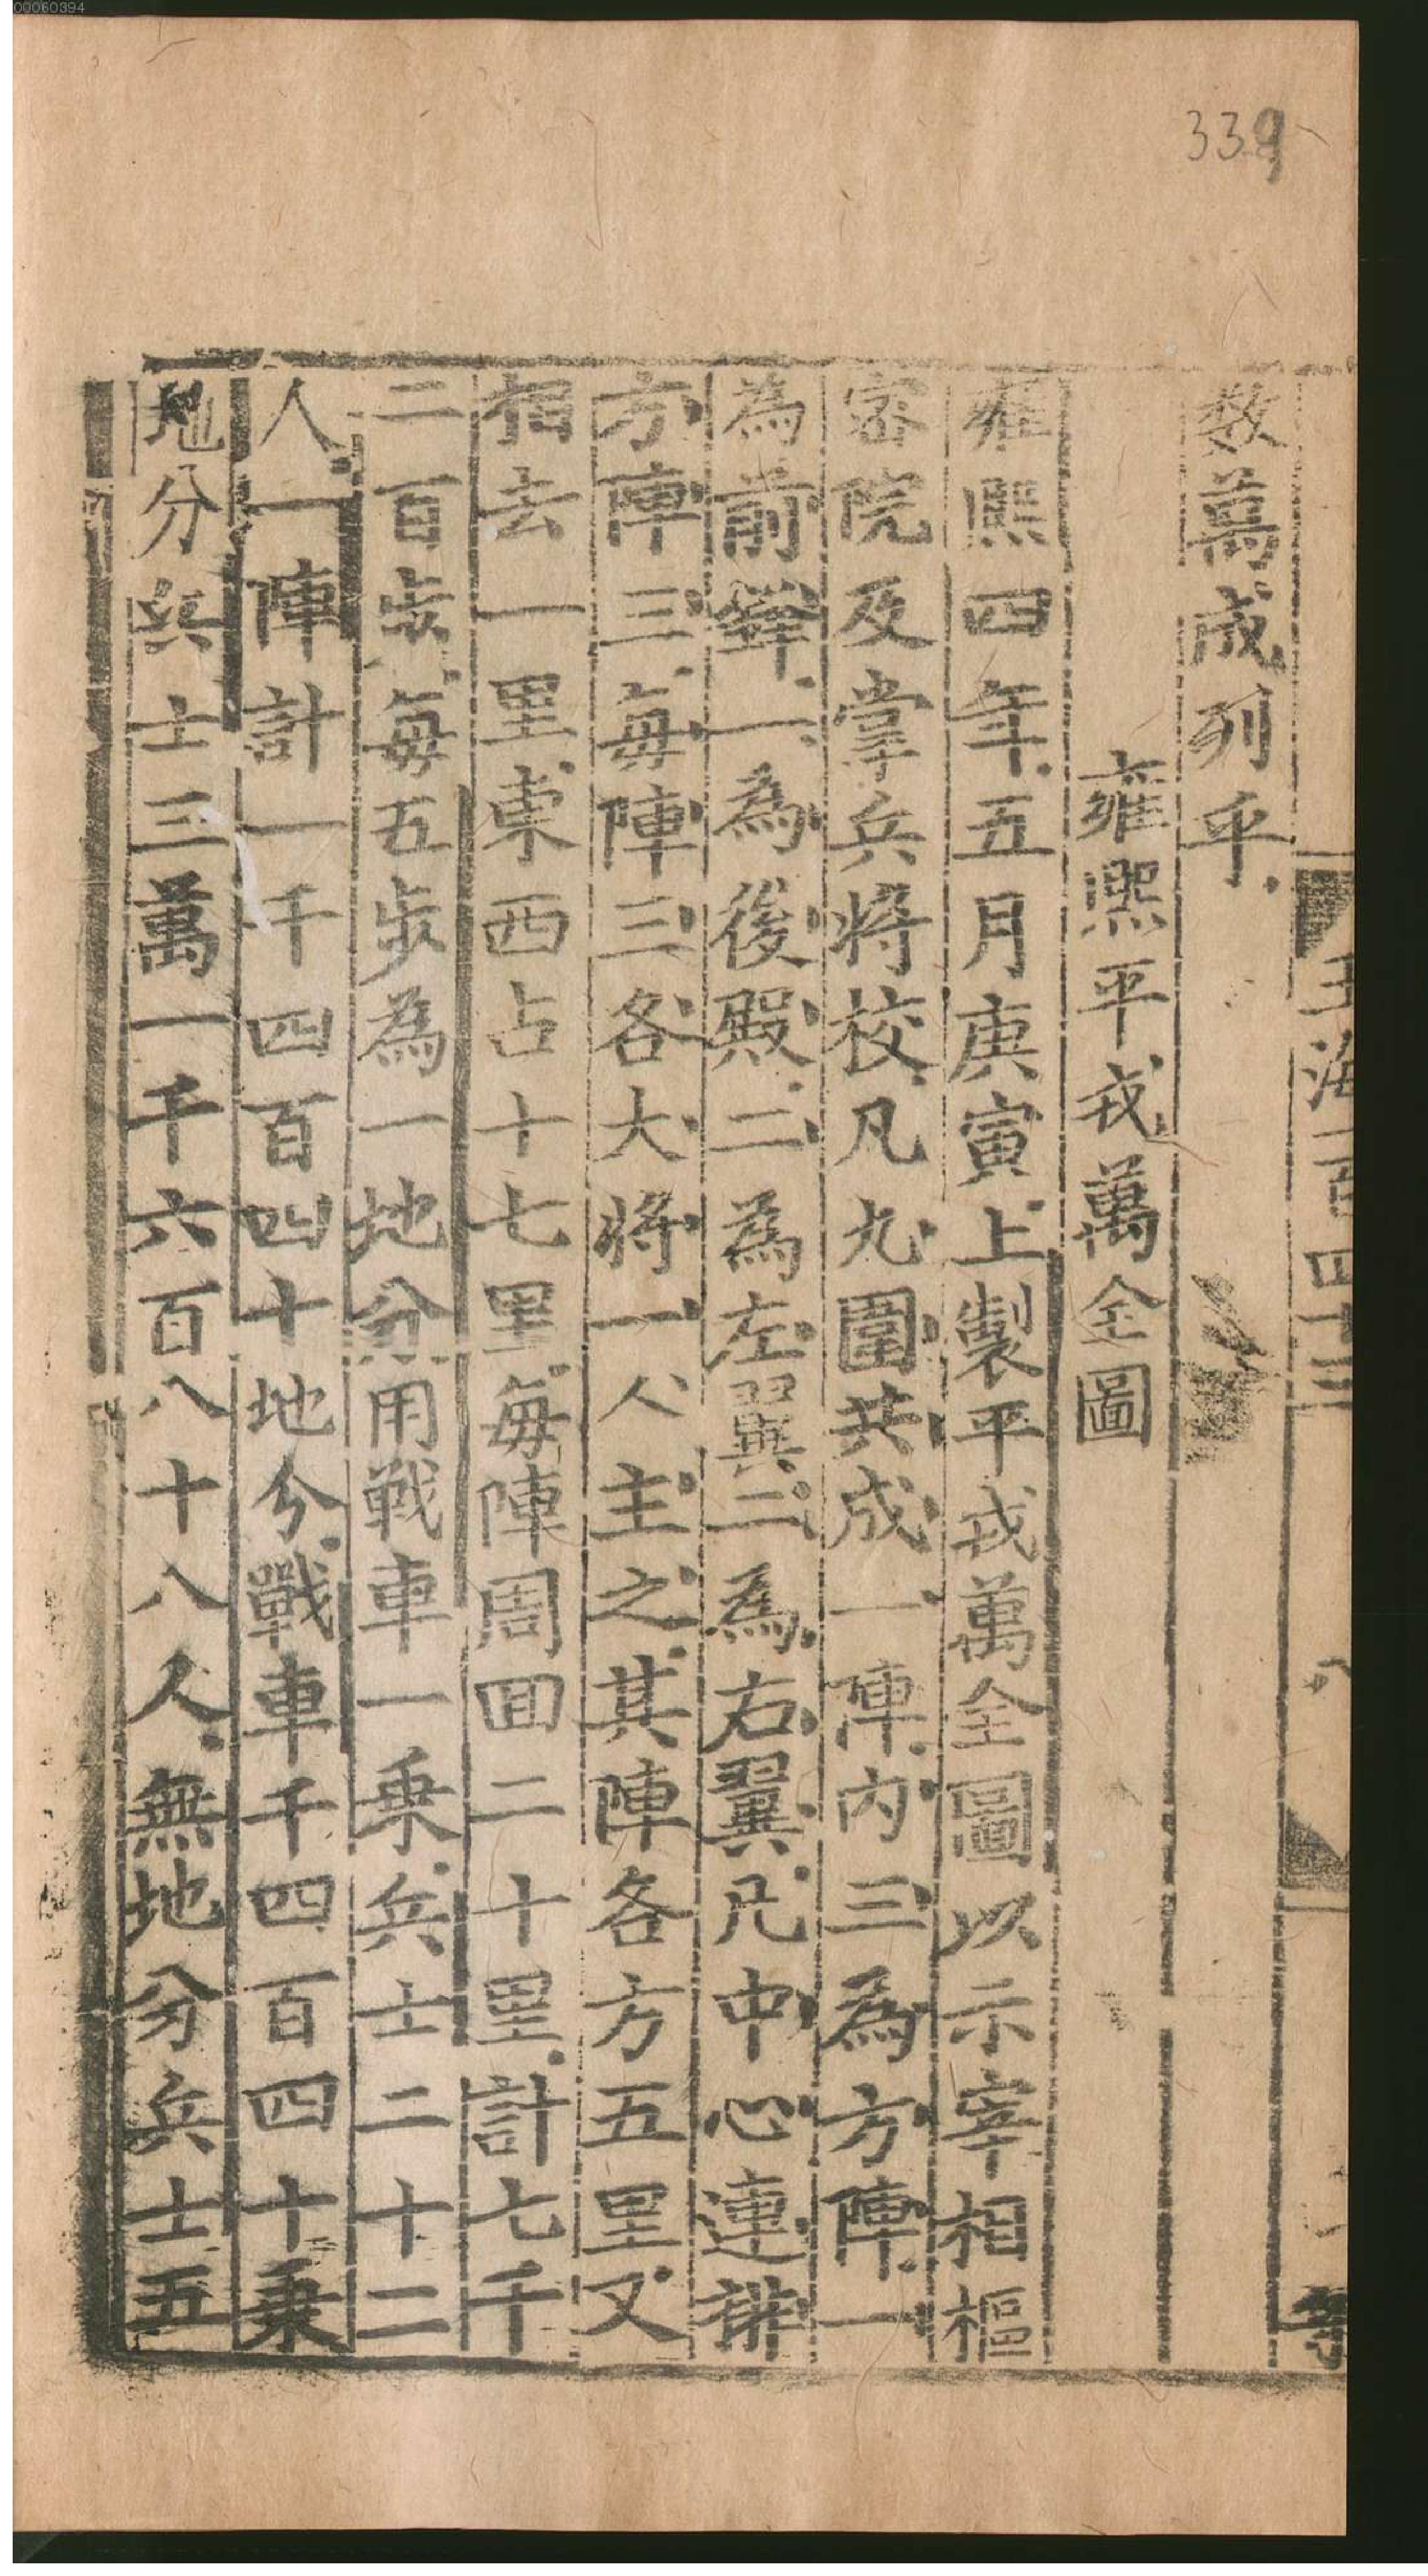 00060394
339
玉海一百四十三
八
数萬成列乎
雍熙平戎萬全圖
雍熙四年五月庚寅上製平戎萬全圖以示宰相樞
密院及掌兵将校凡九圍共成一陣内三為方陣一
為前鋒一為後殿二為左翼二為右翼凡中心連排
方陣三每陣三各大将一人主之其陣各方五里又
相去一里東西占十七里每陣周回二十里計七千
二百歩每五歩為一地分用戦車一乗兵士二十二
人一陣計一千四百四十地分戰車千四百四十乗
地分兵士三萬一千六百八十八人無地分兵士五